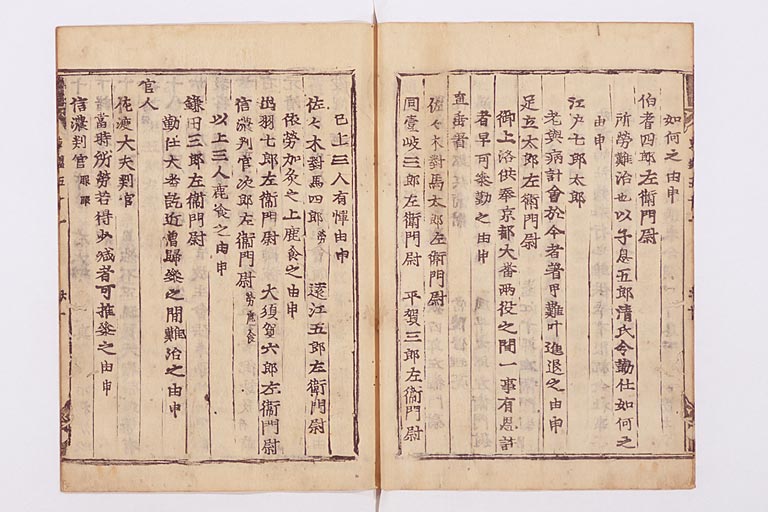 如何之由申
伯耆四郎左衛門尉
所勞難治也以子息五郎清氏令勤仕如何之
由申
江戸七郎太郎
老與病計會於今者著甲難叶進退之由申
足立太郎左衛門尉
御上洛供奉京都大番両役之間一事有恩許
者早可參勤之由申
直垂著
佐々木對馬太郎左衛門尉
同壹岐三郎左衛門尉 平賀三郎左衛門尉
已上三人有憚由申
佐々木對馬四郎勞 遠江五郎左衛門尉
依勞加灸之上鹿食之由申
出羽七郎左衛門尉 大須賀六郎左衛門尉
信濃判官次郎左衛門尉勞鹿食
以上三人鹿食之由申
鎌田三郎左衛門尉
勤仕大番訖近曽歸參之間難治之由申
官人
佐渡大夫判官
當時所勞若得少減者可推參之由申
信濃判官